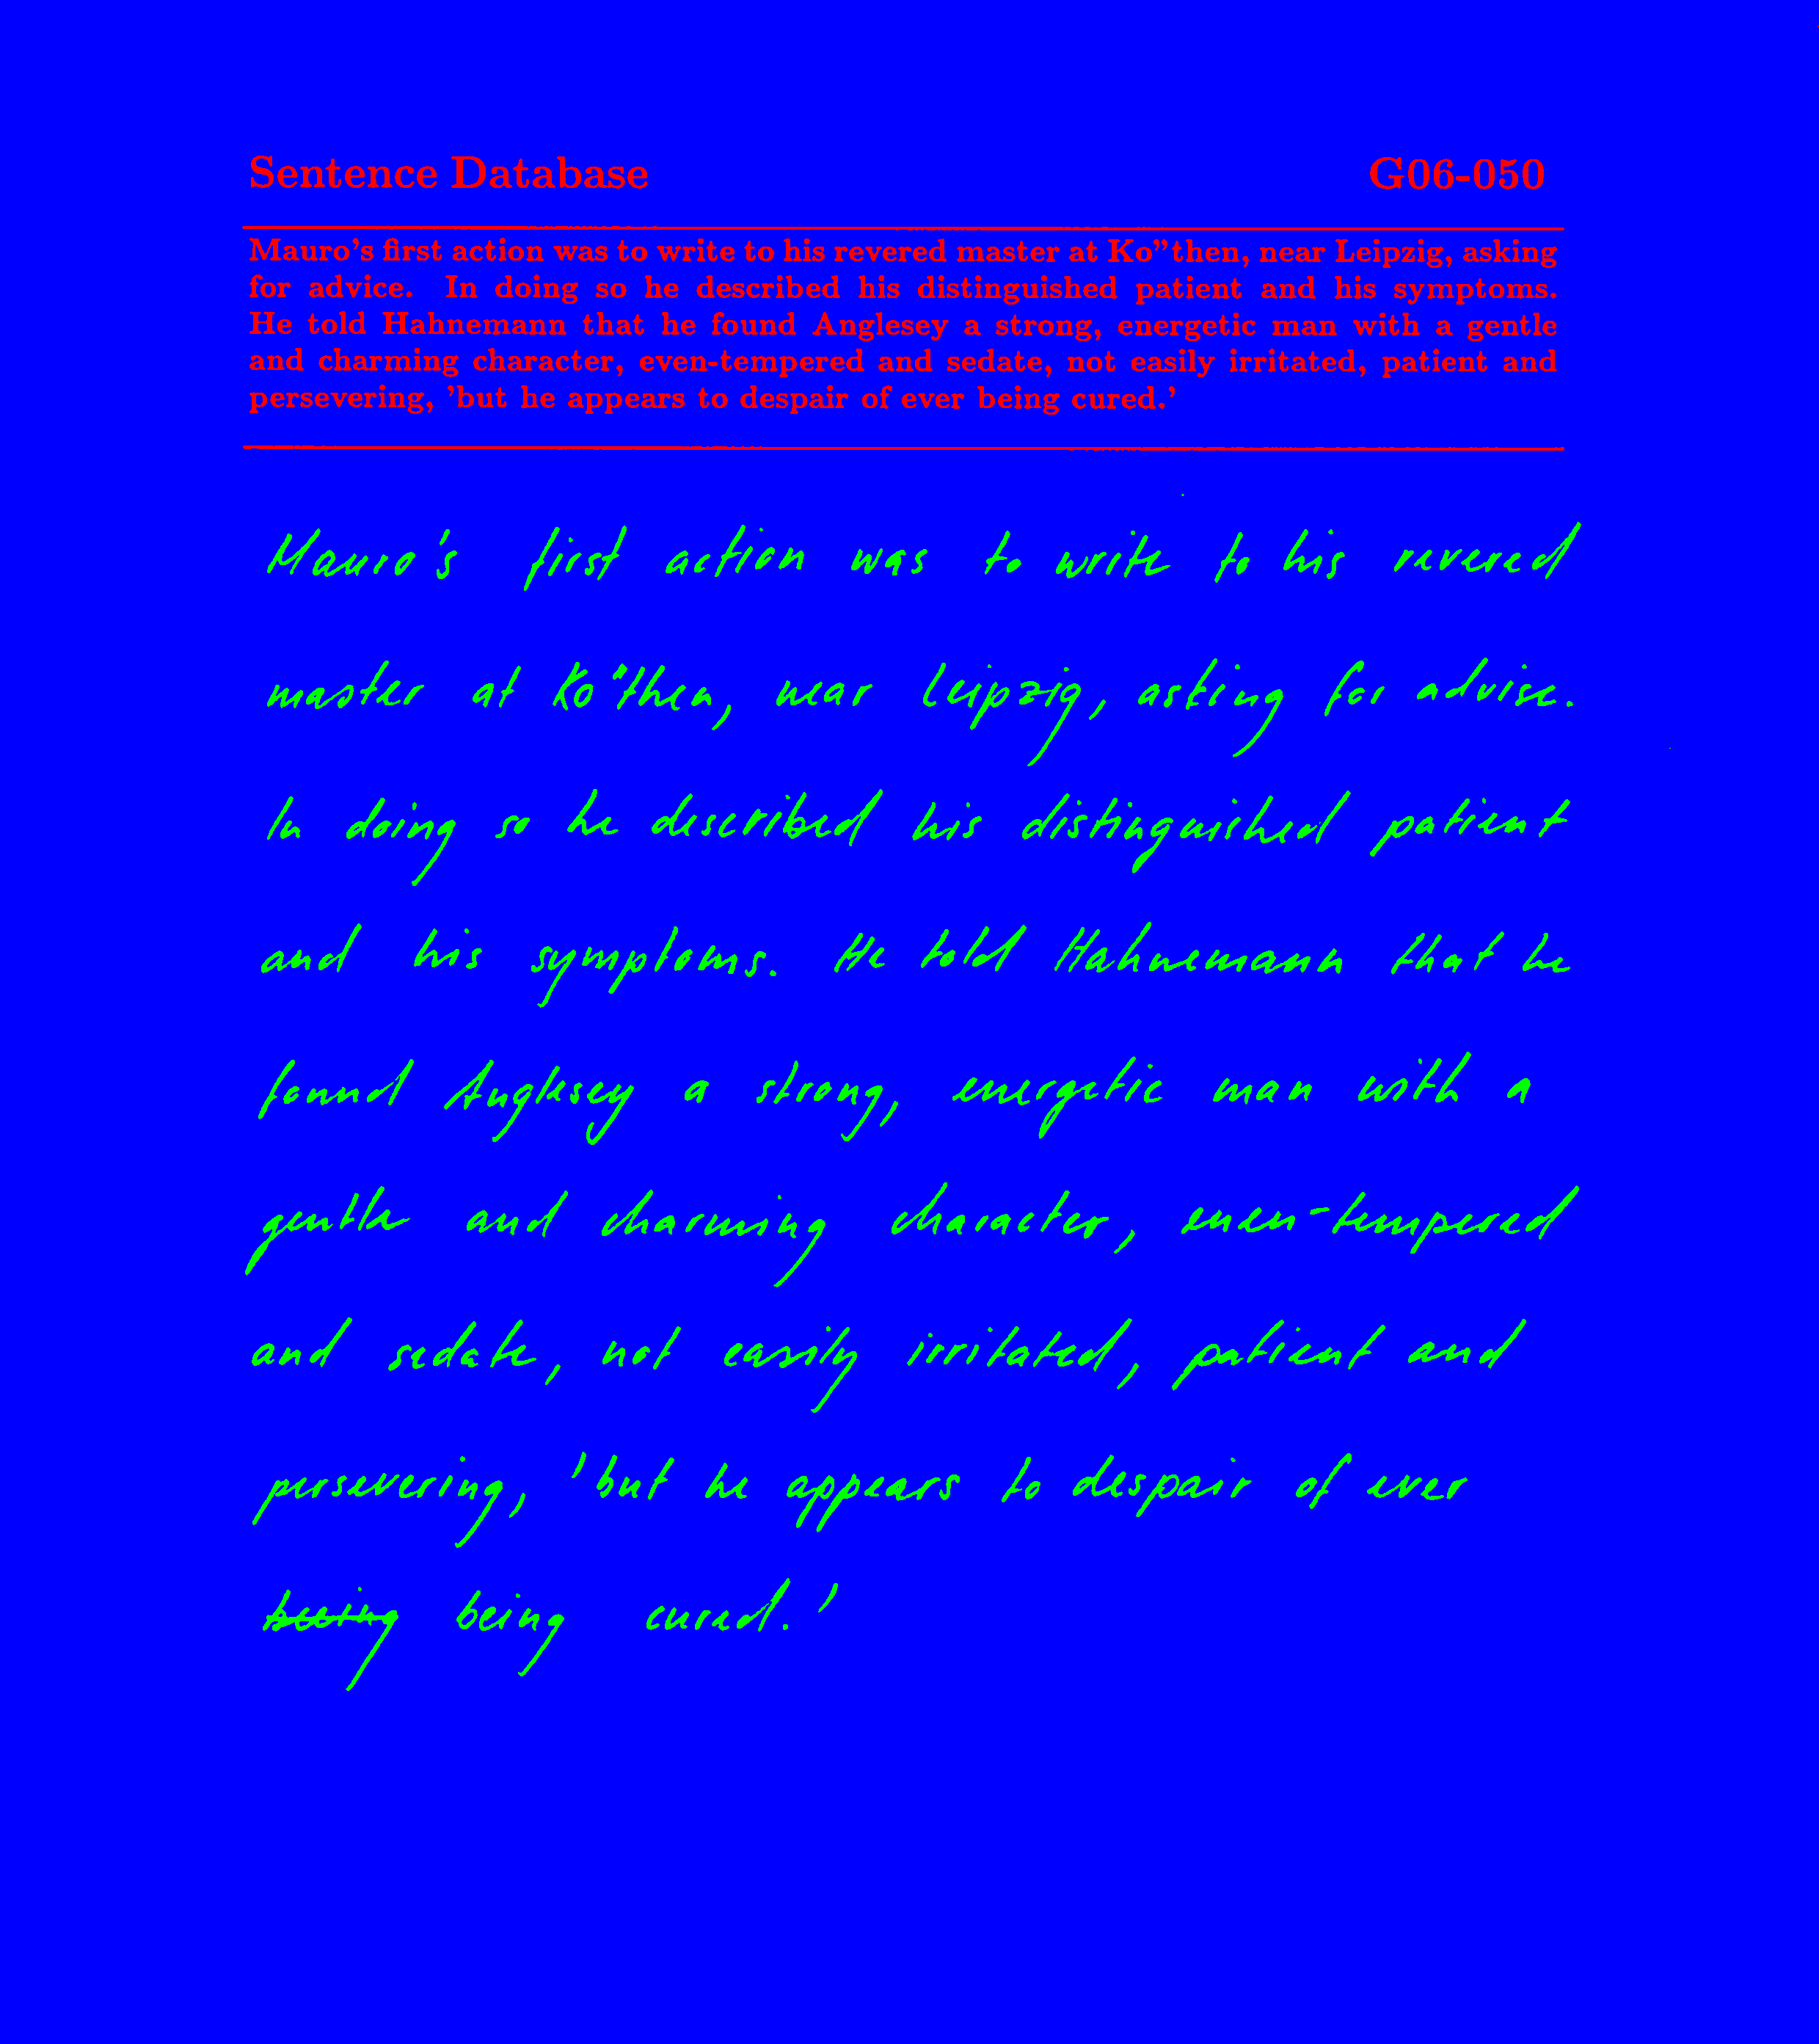 Sentence Database G06-050
Mauro's first action was to write to his revered master at Ko"then, near Leipzig, asking
for advice. In doing so he described his distinguished patient and his symptoms.
He told Hahnemann that he found Anglesey a strong, energetic man with a gentle
and charming character, even-tempered and sedate, not easily irritated, patient and
persevering, 'but he appears to despair of ever being cured.'
Mauro's first action was to write to his revered
master at Ko"then, near Leipzig, asking for advise.
In doing so he described his distinguished patient
and his symptoms. He told Hahnemann that he
found Anglesey a strong, energetic man with a
gentle and charming character, even-tempered
and sedate, not easily irritated, patient and
persevering, 'but he appears to despair of ever
being cured.'